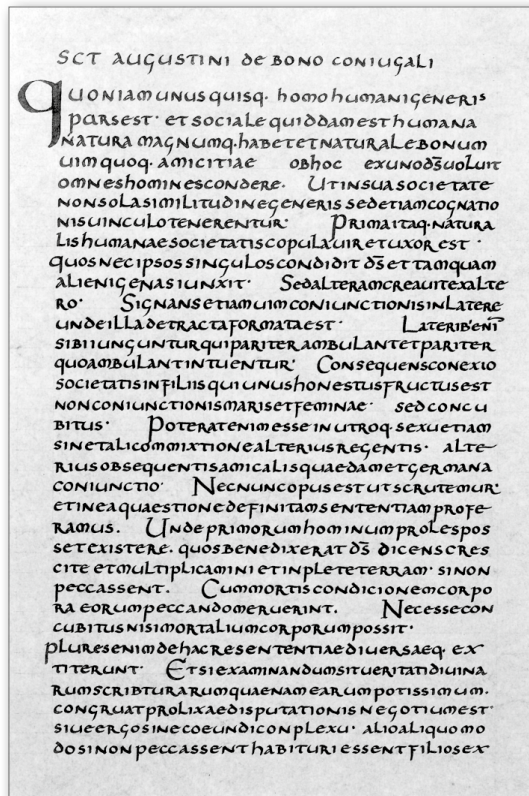 SCT AUGUSTINI de BONO CONIUGALI
QUONIAM UNUS QUISQ· HOMO HUMANI GENERIS
PARS EST· ET SOCIALE QUIDDAM EST HUMANA
NATURA MAGNUMQ· HABET ET NATURALE BONUM
UIM QUOQ· AMICITIAE OB HOC EX UNO D̅S̅ UOLUIT
OMNES HOMINES CONDERE· UT IN SUA SOCIETATE
NON SOLA SIMILITUDINE GENERIS SED ETIAM COGNATIO
NIS UINCULO TENERENTUR· PRIMA ITAQ· NATURA
LIS HUMANAE SOCIETATIS COPULA UIR ET UXOR EST·
QUOS NEC IPSOS SINGULOS CONDIDIT D̅S̅ ET TAMQUAM
ALIENIGENAS IUNXIT· SED ALTERAM CREAUIT EX ALTE
RO· SIGNANS ETIAM UIM CONIUNCTIONIS IN LATERE
UNDE ILLA DETRACTA FORMATA EST· LATERIB· ENI̅
SIBI IUNGUNTUR QUI PARITER AMBULANT ET PARITER
QUO AMBULANT INTUENTUR· CONSEQUENS CONEXIO
SOCIETATIS IN FILIIS QUI UNUS HONESTUS FRUCTUS EST
NON CONIUNCTIONIS MARIS ET FEMINAE· SED CONCU
BITUS· POTERAT ENIM ESSE IN UTROQ· SEXU ETIAM
SINE TALI COMMIXTIONE ALTERIUS REGENTIS· ALTE
RIUS OBSEQUENTIS AMICALIS QUAEDAM ET GERMANA
CONIUNCTIO· NEC NUNC OPUS EST UT SCRUTEMUR
ET IN EA QUAESTIONE DEFINITAM SENTENTIAM PROFE
RAMUS. UNDE PRIMORUM HOMINUM PROLES POS
SET EXISTERE. QUOS BENEDIXERAT D̅S̅ DICENS CRES
CITE ET MULTIPLICAMINI ET INPLETE TERRAM· SI NON
PECCASSENT. CUM MORTIS CONDICIONEM CORPO
RA EORUM PECCANDO MERUERINT. NECESSE CON
CUBITUS NISI MORTALIUM CORPORUM POSSIT·
PLURES ENIM DE HAC RE SENTENTIAE DIVERSAEQ· EX
TITERUNT· ET SI EXAMINANDUM SIT UERITATI DIUINA
RUM SCRIBTURARUM QUAENAM EARUM POTISSIMUM·
CONGRUAT PROLIXAE DISPUTATIONIS NEGOTIUM EST·
SIUE ERGO SINE COEUNDI CONPLEXU· ALIO ALIQUO MO
DO SI NON PECCASSENT HABITURI ESSENT FILIOS EX